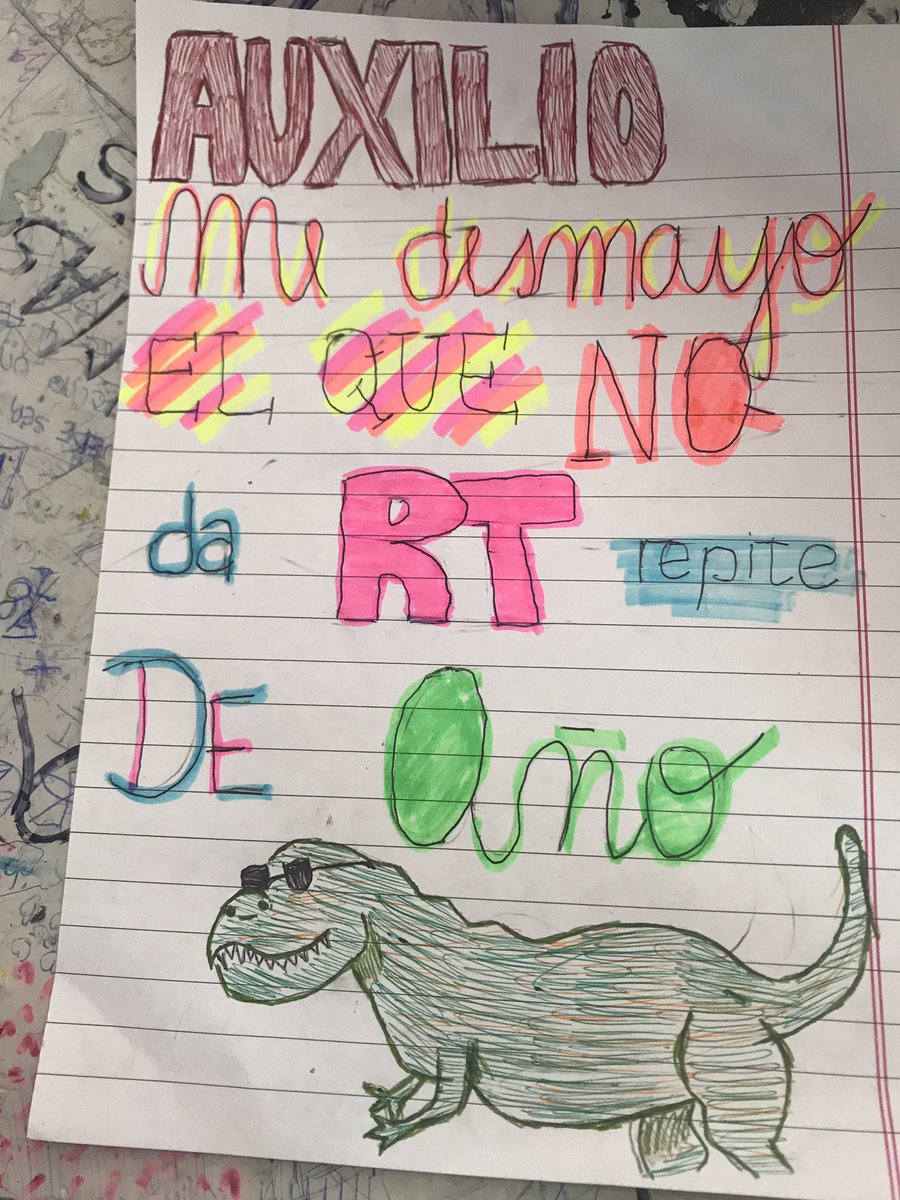 AUXILIO
Me desmayo
EL QUE NO
da RT repite
DE año